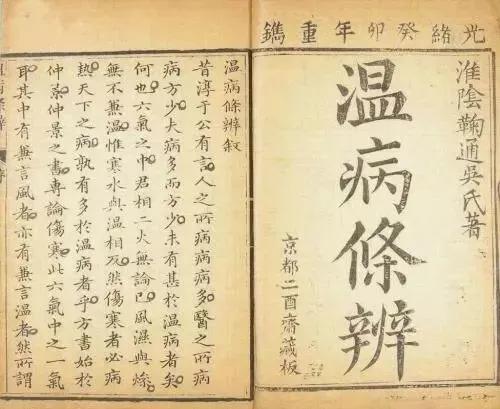 光緒癸卯年重鐫
淮陰鞠通吳氏著
温病條辨
京都二酉齋藏板
温病條辨叙
昔淳于公有言人之所病病病多醫之所病
病方少夫病多而方少未有甚於温病者矣
何也六氣之中君相二火無論已風濕與燥
無不兼温惟寒水與温相反然傷寒者必病
熱天下之病孰有多於温病者乎方書始於
仲景仲景之書專論傷寒此六氣中之一氣
耳其中有兼言風者亦有兼言温者然所謂